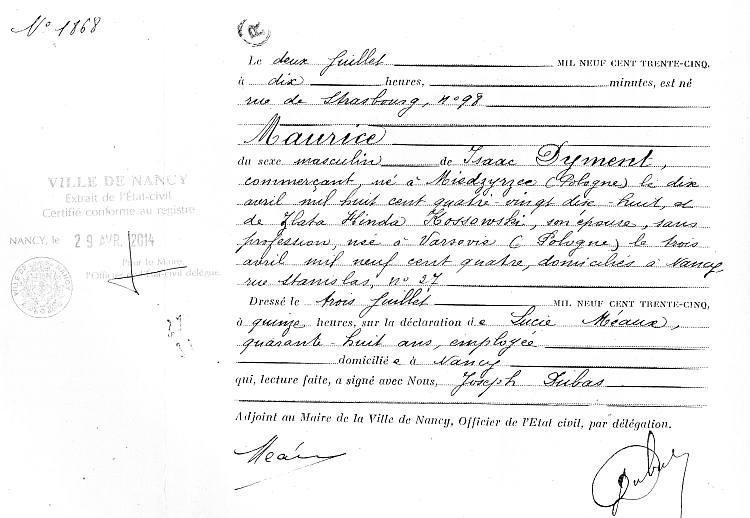 N° 1868
Le deux Juillet MIL NEUF CENT TRENTE-CINQ,
à dix heures, minutes, est né
rue de Strasbourg, n° 98
Maurice
du sexe masculin de Isaac Dyment,
commerçant, né à Miedzyrzec (Pologne) le dix
avril mil huit cent quatre-vingt dix-huit, et
de Zlata Hinda Kossowski, son épouse, sans
profession, née à Varsovie (Pologne) le trois
avril mil neuf cent quatre, domiciliés à Nancy,
rue Stanislas, n° 37
Dressé le trois Juillet MIL NEUF CENT TRENTE-CINQ,
à quinze heures, sur la déclaration de Lucie Méaux,
quarante-huit ans, employée
domiciliée à Nancy
qui, lecture faite, a signé avec Nous, Joseph Dubas
Adjoint au Maire de la Ville de Nancy, Officier de l'Etat civil, par délégation.
VILLE DE NANCY
Extrait de l'État-civil
Certifié conforme au registre
NANCY, le 29 AVR. 2014
Pour le Maire
l'Officier d'État-Civil délégué